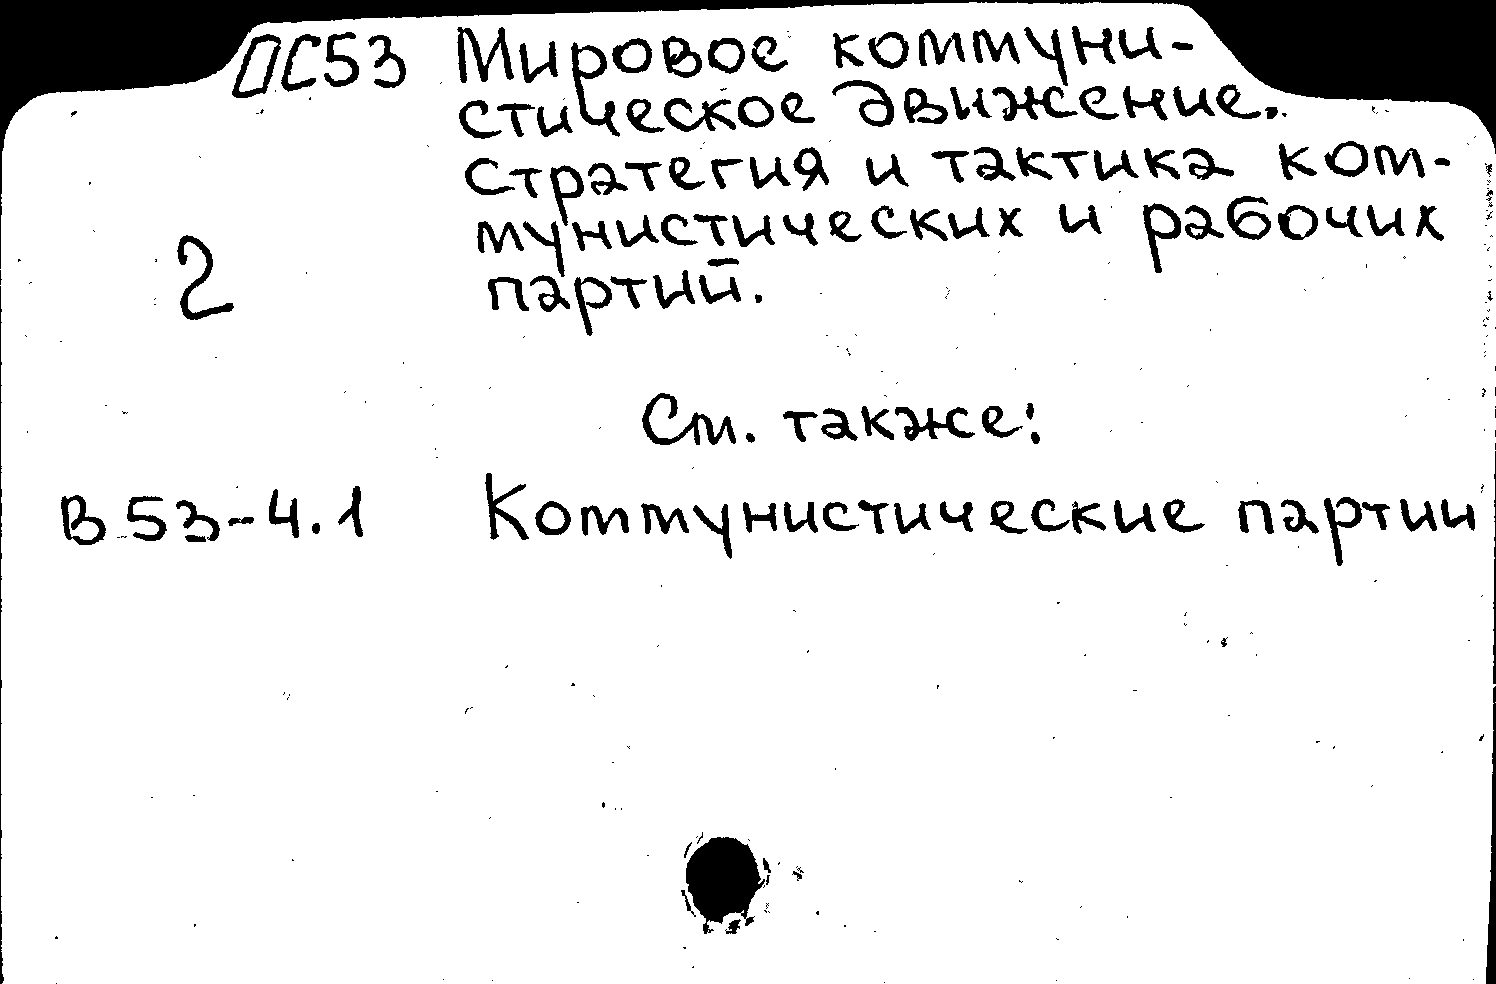 ПС53 Мировое коммуни-
стическое движение.
Стратегия и тактика ком-
мунистических и рабочих
2
партий.
См. также:
В 53-4.1 Коммунистические партии